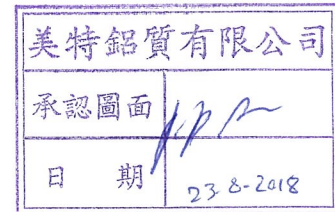 美特鋁質有限公司
承認圖面
日 期 23-8-2018